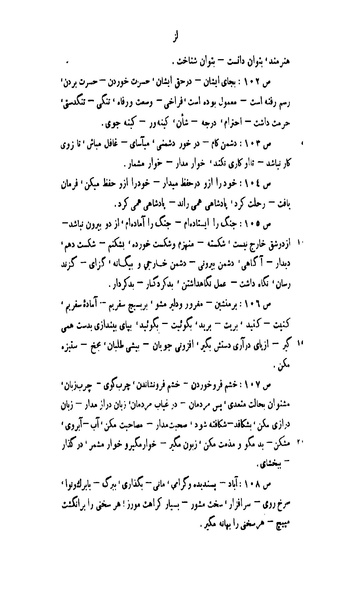 از
هنرمند، بتوان دانست – بتوان شناخت .
ص ۱۰۲ : بجای ایشان – درحق ایشان، حسرت خوردن – حسرت بردن،
رسم رفته است – معمول بوده است، فراخی – وسعت ورفاه، تنگی – تنگدستی،
حرمت داشت – احترام، درجه – شأن، کینه‌ور – کینه جوی .
ص ۱۰۳ : دشمن کام – در خور دشمنی، میآسای – غافل مباش، تا زوی
کار نباشد – تااو کاری نکند، خوار مدار – خوار مشمار .
ص ۱۰۴ : خود را ازو درحفظ میدار – خودرا ازو حفظ میکن، فرمان
یافت – رحلت کرد، پادشاهی همی راند – پادشاهی همی کرد .
ص ۱۰۵ : جنگ را ایستاده‌ام – جنگ را آماده‌ام، از دو بیرون نباشد –
ازدوشق خارج نیست، شکسته – منهزم وشکست خورده، بشکنم – شکست دهم،
دیدار – آگاهی، دشمن بیرونی – دشمن خارجی و بیگانه، گزای – گزند
رسان، نگاه داشت – عمل نگاهداشتن، بدکردگار – بدکردار .
ص ۱۰۶ : برمنشین – مغرور ودلیر مشو، بر بسیج سفریم – آمادهٔ سفریم،
کنیت – کنید، بریت – برید، بگوئیت – بگوئید، بپای بیندازی بدست همی
گیر – ازپای درآری دستش بگیر، افزونی جویان – بیشی طلبان، مچخ – ستیزه
مکن .
ص ۱۰۷ : خشم فروخوردن – خشم فرونشاندن، چرب‌گوی – چرب‌زبان،
مشنوان بحالت متعدی، پس مردمان – در غیاب مردمان، زبان دراز مدار – زبان
درازی مکن، بشکافد – شکافته شود، صحبت‌مدار – مصاحبت مکن، آب – آبروی،
مشکن – بد مگو و مذمت مکن، زبون مگیر – خوارمگیرو خوار مشمر، در گذار
– ببخشای .
ص ۱۰۸ : آباد – پسندیده وگرامی، مانی – بگذاری، ببرگ – بابرگ‌ونوا،
سرخ روی – سرافراز، سخت مشور – بسیار کراهت مورز، هر سخنی را برانگشت
مپیچ – هرسخنی را بهانه مگیر .